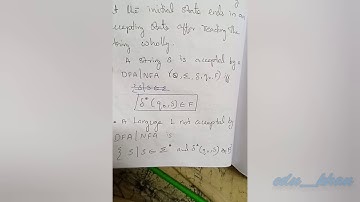 the initial state ends in an
accepting state after reading the
string wholly.
A string S is accepted by a
DFA/NFA (Q, Σ, δ, q₀, F) if
δ*(q₀, S) ∈ F
• A Language L not accepted by
DFA/NFA is
{ S | S ∈ Σ* and δ*(q₀, S) ∉ F
edu_khan